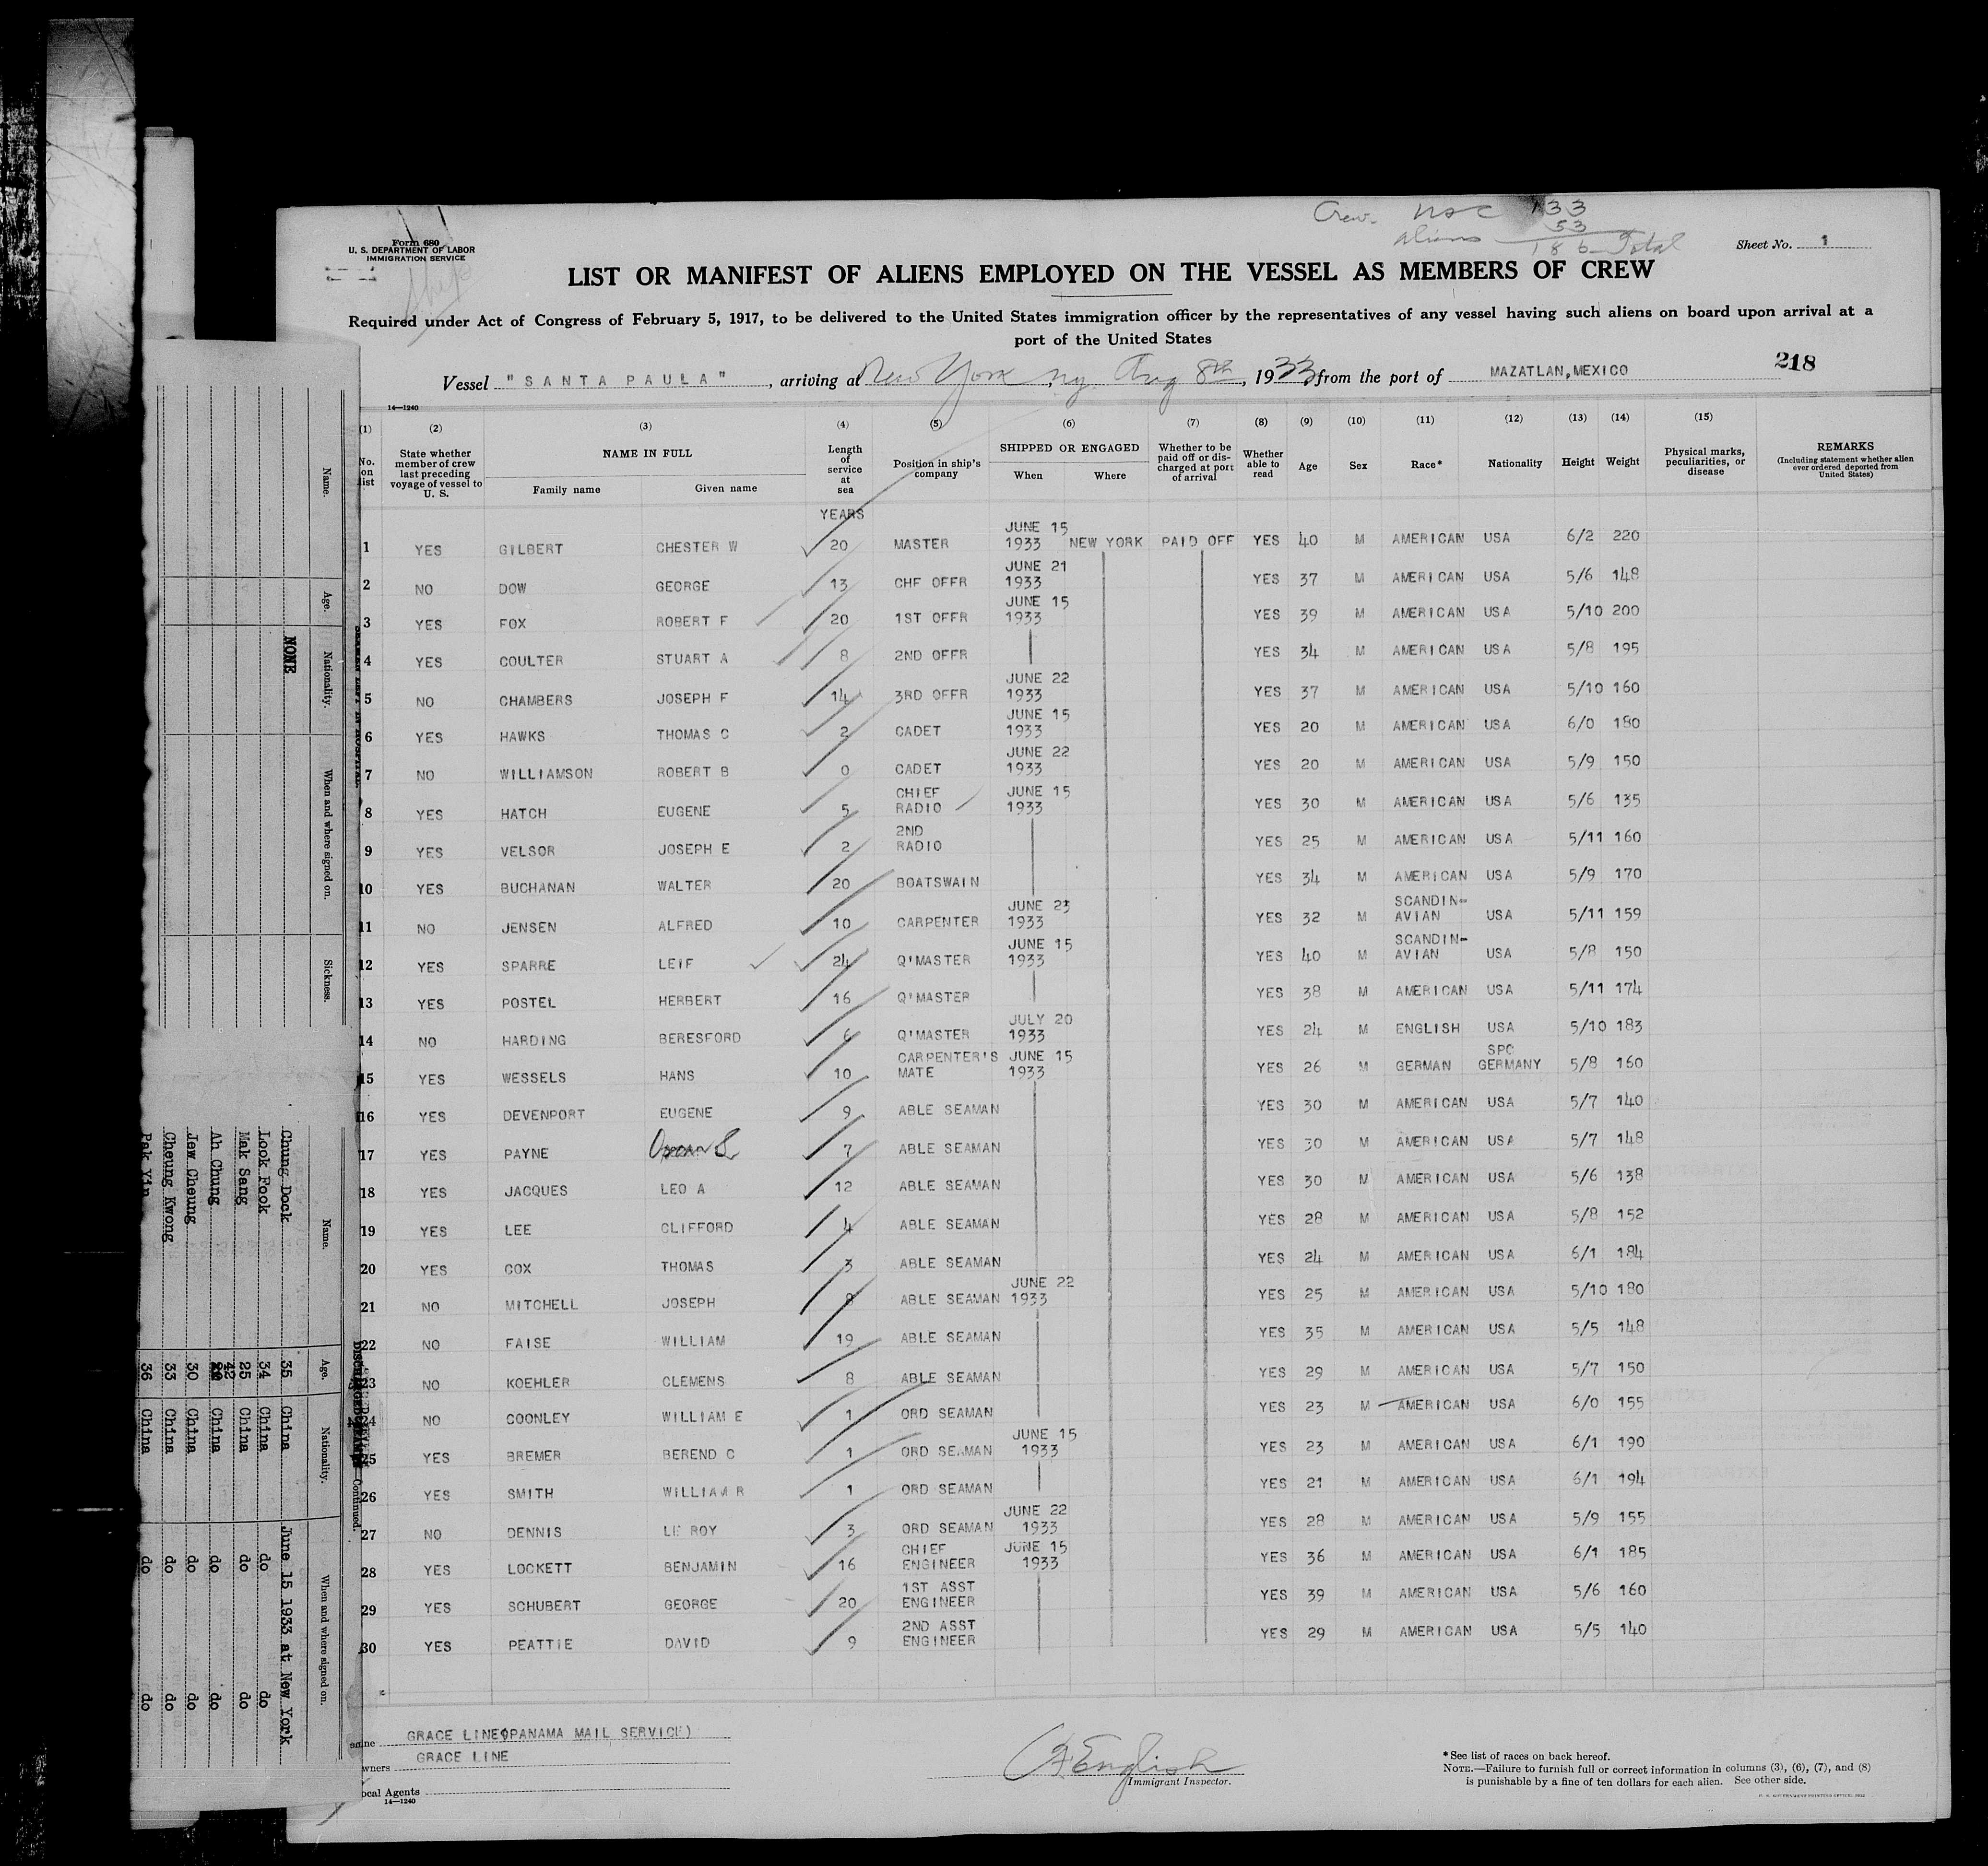 Crew. USC 133
aliens 53
186 Total
Form 680
U. S. DEPARTMENT OF LABOR
IMMIGRATION SERVICE
Sheet No. 1
LIST OR MANIFEST OF ALIENS EMPLOYED ON THE VESSEL AS MEMBERS OF CREW
Required under Act of Congress of February 5, 1917, to be delivered to the United States immigration officer by the representatives of any vessel having such aliens on board upon arrival at a
port of the United States
218
Vessel "SANTA PAULA", arriving at New York, ny. Aug 8th, 1933, from the port of MAZATLAN, MEXICO
14—1240
(1) (2) (3) (4) (5) (6) (7) (8) (9) (10) (11) (12) (13) (14) (15)
No. on list
State whether member of crew last preceding voyage of vessel to U. S.
NAME IN FULL
Family name Given name
Length of service at sea
Position in ship's company
SHIPPED OR ENGAGED
When Where
Whether to be paid off or discharged at port of arrival
Whether able to read
Age Sex Race* Nationality Height Weight
Physical marks, peculiarities, or disease
REMARKS
(Including statement whether alien ever ordered deported from United States)
YEARS
1 YES GILBERT CHESTER W 20 MASTER JUNE 15 1933 NEW YORK PAID OFF YES 40 M AMERICAN USA 6/2 220
2 NO DOW GEORGE 13 CHF OFFR JUNE 21 1933 YES 37 M AMERICAN USA 5/6 148
3 YES FOX ROBERT F 20 1ST OFFR JUNE 15 1933 YES 39 M AMERICAN USA 5/10 200
4 YES COULTER STUART A 8 2ND OFFR YES 34 M AMERICAN USA 5/8 195
5 NO CHAMBERS JOSEPH F 14 3RD OFFR JUNE 22 1933 YES 37 M AMERICAN USA 5/10 160
6 YES HAWKS THOMAS C 2 CADET JUNE 15 1933 YES 20 M AMERICAN USA 6/0 180
7 NO WILLIAMSON ROBERT B 0 CADET JUNE 22 1933 YES 20 M AMERICAN USA 5/9 150
8 YES HATCH EUGENE 5 CHIEF RADIO JUNE 15 1933 YES 30 M AMERICAN USA 5/6 135
9 YES VELSOR JOSEPH E 2 2ND RADIO YES 25 M AMERICAN USA 5/11 160
10 YES BUCHANAN WALTER 20 BOATSWAIN YES 34 M AMERICAN USA 5/9 170
11 NO JENSEN ALFRED 10 CARPENTER JUNE 23 1933 YES 32 M SCANDIN-AVIAN USA 5/11 159
12 YES SPARRE LEIF 24 Q'MASTER JUNE 15 1933 YES 40 M SCANDIN-AVIAN USA 5/8 150
13 YES POSTEL HERBERT 16 Q'MASTER YES 38 M AMERICAN USA 5/11 174
14 NO HARDING BERESFORD 6 Q'MASTER JULY 20 1933 YES 24 M ENGLISH USA 5/10 183
15 YES WESSELS HANS 10 CARPENTER'S MATE JUNE 15 1933 YES 26 M GERMAN SPC GERMANY 5/8 160
16 YES DEVENPORT EUGENE 9 ABLE SEAMAN YES 30 M AMERICAN USA 5/7 140
17 YES PAYNE 7 ABLE SEAMAN YES 30 M AMERICAN USA 5/7 148
18 YES JACQUES LEO A 12 ABLE SEAMAN YES 30 M AMERICAN USA 5/6 138
19 YES LEE CLIFFORD 4 ABLE SEAMAN YES 28 M AMERICAN USA 5/8 152
20 YES COX THOMAS 3 ABLE SEAMAN YES 24 M AMERICAN USA 6/1 184
21 NO MITCHELL JOSEPH 8 ABLE SEAMAN JUNE 22 1933 YES 25 M AMERICAN USA 5/10 180
22 NO FAISE WILLIAM 19 ABLE SEAMAN YES 35 M AMERICAN USA 5/5 148
23 NO KOEHLER CLEMENS 8 ABLE SEAMAN YES 29 M AMERICAN USA 5/7 150
24 NO COONLEY WILLIAM E 1 ORD SEAMAN YES 23 M AMERICAN USA 6/0 155
25 YES BREMER BEREND C 1 ORD SEAMAN JUNE 15 1933 YES 23 M AMERICAN USA 6/1 190
26 YES SMITH WILLIAM R 1 ORD SEAMAN YES 21 M AMERICAN USA 6/1 194
27 NO DENNIS LE ROY 3 ORD SEAMAN JUNE 22 1933 YES 28 M AMERICAN USA 5/9 155
28 YES LOCKETT BENJAMIN 16 CHIEF ENGINEER JUNE 15 1933 YES 36 M AMERICAN USA 6/1 185
29 YES SCHUBERT GEORGE 20 1ST ASST ENGINEER YES 39 M AMERICAN USA 5/6 160
30 YES PEATTIE DAVID 9 2ND ASST ENGINEER YES 29 M AMERICAN USA 5/5 140
GRACE LINE(PANAMA MAIL SERVICE)
wners GRACE LINE
ocal Agents
14—1240
English
Immigrant Inspector.
*See list of races on back hereof.
NOTE.—Failure to furnish full or correct information in columns (3), (6), (7), and (8)
is punishable by a fine of ten dollars for each alien. See other side.
Name. Age. Nationality. When and where signed on. Sickness.
NONE
Continued.
Name. Age. Nationality. When and where signed on.
Chung Dock 35 China June 15 1933 at New York
Look Fook 34 China do do
Mak Sang 25 China do do
Ah Chung 42 China do do
Jew Cheung 30 China do do
Cheung Kwong 33 China do do
Pak Yin 36 China do do